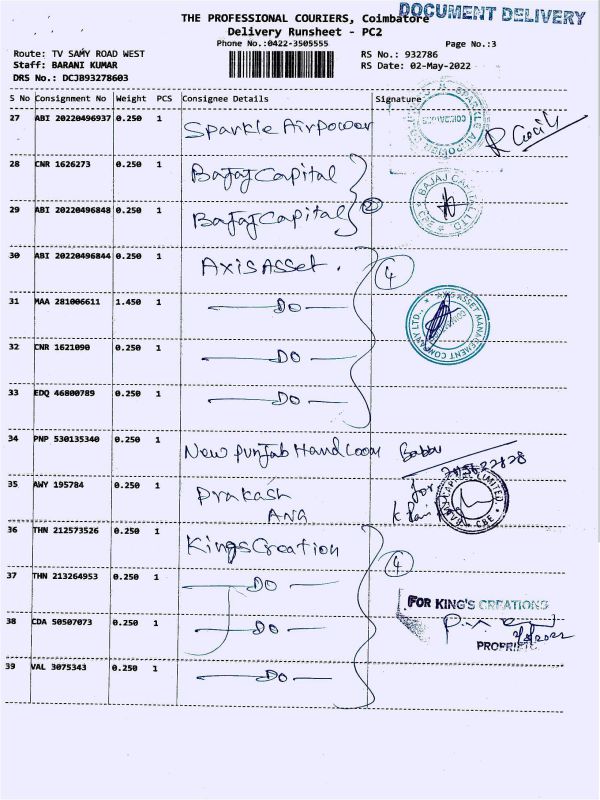 THE PROFESSIONAL COURIERS, Coimbatore
DOCUMENT DELIVERY
Delivery Runsheet - PC2
Phone No.:0422-3505555
Page No.:3
Route: TV SAMY ROAD WEST
RS No.: 932786
Staff: BARANI KUMAR
RS Date: 02-May-2022
DRS No.: DCJB93278603
S No Consignment No Weight PCS Consignee Details Signature
27 ABI 20220496937 0.250 1 Sparkle Airpower
28 CNR 1626273 0.250 1 Bajaj Capital
BAJAJ CAPITAL LTD
CBE
29 ABI 20220496848 0.250 1 Bajaj Capital 2
30 ABI 20220496844 0.250 1 Axis Asset. 4
31 MAA 281006611 1.450 1 DO
AXIS ASSET MANAGEMENT COMPANY LTD.,
32 CNR 1621090 0.250 1 DO
33 EDQ 46800789 0.250 1 DO
34 PNP 530135340 0.250 1 New Punjab Handloom Babbu
35 AWY 195784 0.250 1 Prakash
ANG
for
CAPITAL LIMITED
CBE
36 THN 212573526 0.250 1 Kings Creation
37 THN 213264953 0.250 1 DO 4
FOR KING'S CREATIONS
38 CDA 50507073 0.250 1 DO
2/5/2022
PROPRIET
39 VAL 3075343 0.250 1 DO